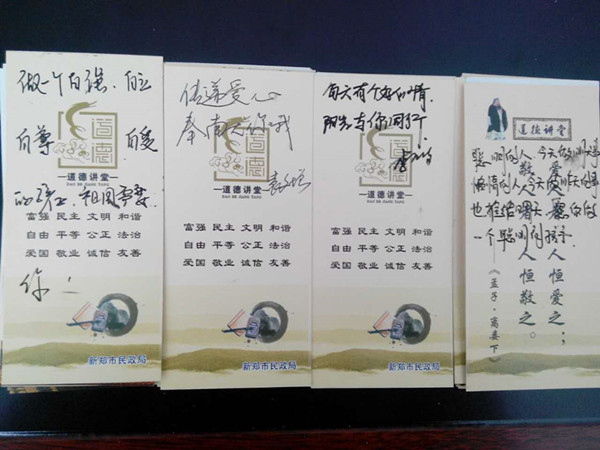 做一个自强、自立
自尊 自爱
道德
道德讲堂
DAO DE JIANG TANG
的 祖国需要
富强 民主 文明 和谐
自由 平等 公正 法治
爱国 敬业 诚信 友善
你！
新郑市民政局
传递爱心
奉南 你我
道德
道德讲堂
富强 民主 文明 和谐
自由 平等 公正 法治
爱国 敬业 诚信 友善
新郑市民政局
每天有个好心情
阳光与你同行
道德
道德讲堂
富强 民主 文明 和谐
自由 平等 公正 法治
爱国 敬业 诚信 友善
新郑市民政局
道德讲堂
聪明的人 今天做明天的事
懒惰的人 今天做昨天的事
也 给明天 愿你做
一个聪明的孩子
爱人者，人恒爱之；
敬人者，人恒敬之。
《孟子·离娄下》